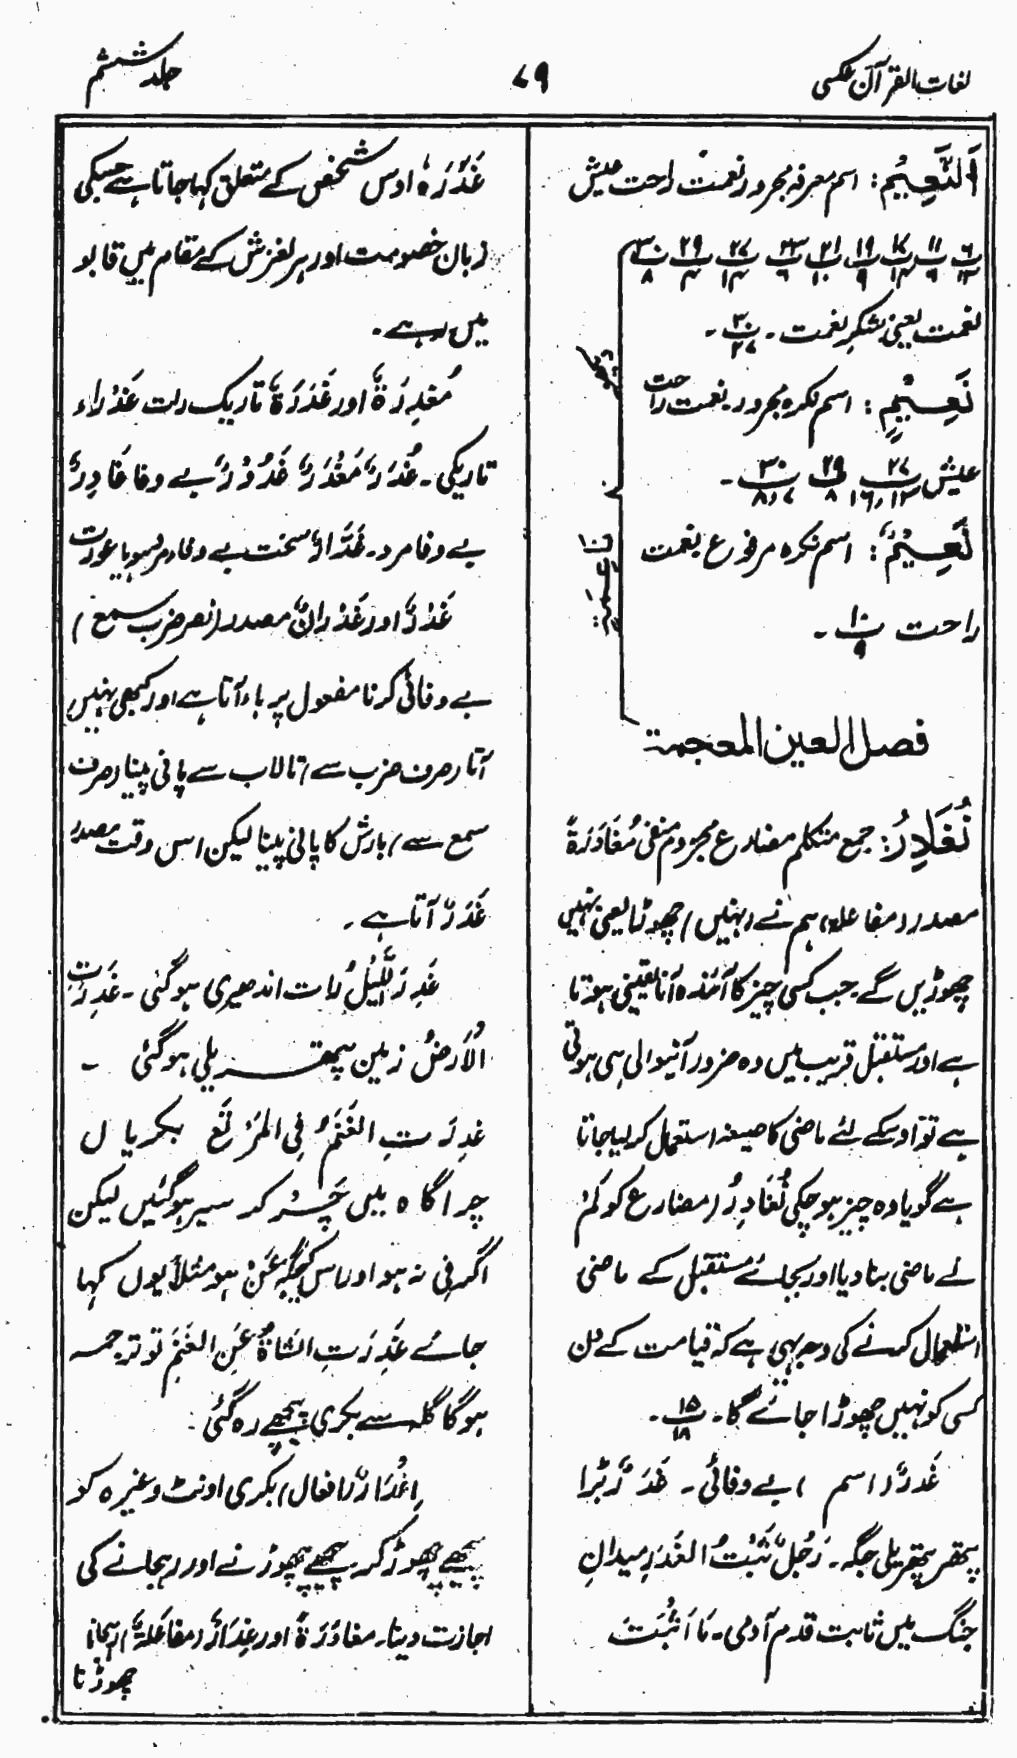 لغات القرآن عکسی
۷۹
جلد ششم
اَلنَّعِیْمُ: اسم معرفہ مجرور نعمت راحت عیش
۶/۱۳ ۱۱/۹ ۱۷/۱۴ ۱۹/۹ ۲۱/۱۰ ۲۳/۶ ۲۷/۱۴ ۲۹/۴ ۳۰/۸
نعمت یعنی شکرِ نعمت ۔ ۳۰/۲۷ ۔
نَعِیْمٍ: اسم نکرہ مجرور نعمت راحت
عیش ۲۷/۱۶،۱۲ ۲۹/۸ ۳۰/۸،۷ ۔
نَعِیْمٌ: اسم نکرہ مرفوع نعمت
راحت ۱۰/۹ ۔
فصل الغین المعجمۃ
نُغَادِرُ: جمع متکلم مضارع مجزوم منفی مُغَادَرَۃٌ
مصدر (مفاعلہ) ہم نے (نہیں) چھوڑا یعنی نہیں
چھوڑیں گے جب کسی چیز کا آئندہ آنا یقینی ہوتا
ہے اور مستقبل قریب میں وہ ضرور آنیوالی ہی ہوتی
ہے تو اوسکے لئے ماضی کا صیغہ استعمال کر لیا جاتا
ہے گویا وہ چیز ہو چکی نُغَادِرُ (مضارع کو لَمْ
نے ماضی بنا دیا اور بجائے مستقبل کے ماضی
استعمال کرنے کی وجہ یہی ہے کہ قیامت کے دن
کسی کو نہیں چھوڑا جائے گا۔ ۱۵/۱۸ ۔
غَدْرٌ (اسم) بے وفائی ۔ غَدَرٌ بڑا
پتھر پتھریلی جگہ ۔ رَجُلٌ ثَبْتُ الغَدَرِ میدانِ
جنگ میں ثابت قدم آدمی ۔ مَا اَثْبَتَ
غَدَرَہٗ اوس شخص کے متعلق کہا جاتا ہے جسکی
زبان خصومت اور ہر لغزش کے مقام میں قابو
میں رہے ۔
مُغْدِرَۃٌ اور غَدِرَۃٌ تاریک رات غَدْرَاء
تاریکی ۔ غُدَرُ مَغْدَرُ غَدُوْرٌ بے وفا غَادِرٌ
بے وفا مرد ۔ غَدَّارٌ سخت بے وفا، مرد ہو یا عورت
غَدْرٌ اور غَدْرَانٌ مصدر (نصر ضرب سمع)
بے وفائی کرنا مفعول پر باء آتا ہے اور کبھی نہیں
آتا (صرف ضرب سے) تالاب سے پانی پینا (صرف
سمع سے) بارش کا پانی پینا لیکن اس وقت مصدر
غَدَرٌ آتا ہے ۔
غَدِرَ اللَّیْلُ رات اندھیری ہو گئی ۔ غَدِرَتِ
الْاَرْضُ زمین پتھریلی ہو گئی ۔
غدِرَتِ الْغَنَمُ فِی الْمَرْتَعِ بکریاں
چراگاہ میں چَر کر سیر ہو گئیں لیکن
اگر فی نہ ہو اور اس کی جگہ عَنْ ہو مثلاً یوں کہا
جائے غَدِرَتِ الشَّاۃُ عَنِ الغَنَمِ تو ترجمہ
ہوگا گلہ سے بکری پیچھے رہ گئی ۔
اِغْدَارٌ (افعال) بکری اونٹ وغیرہ کو
پیچھے چھوڑ کر پیچھے چھوڑنے اور رہجانے کی
اجازت دینا ۔ مغادَرَۃٌ اور غِدَارٌ (مفاعلۃ)
چھوڑنا